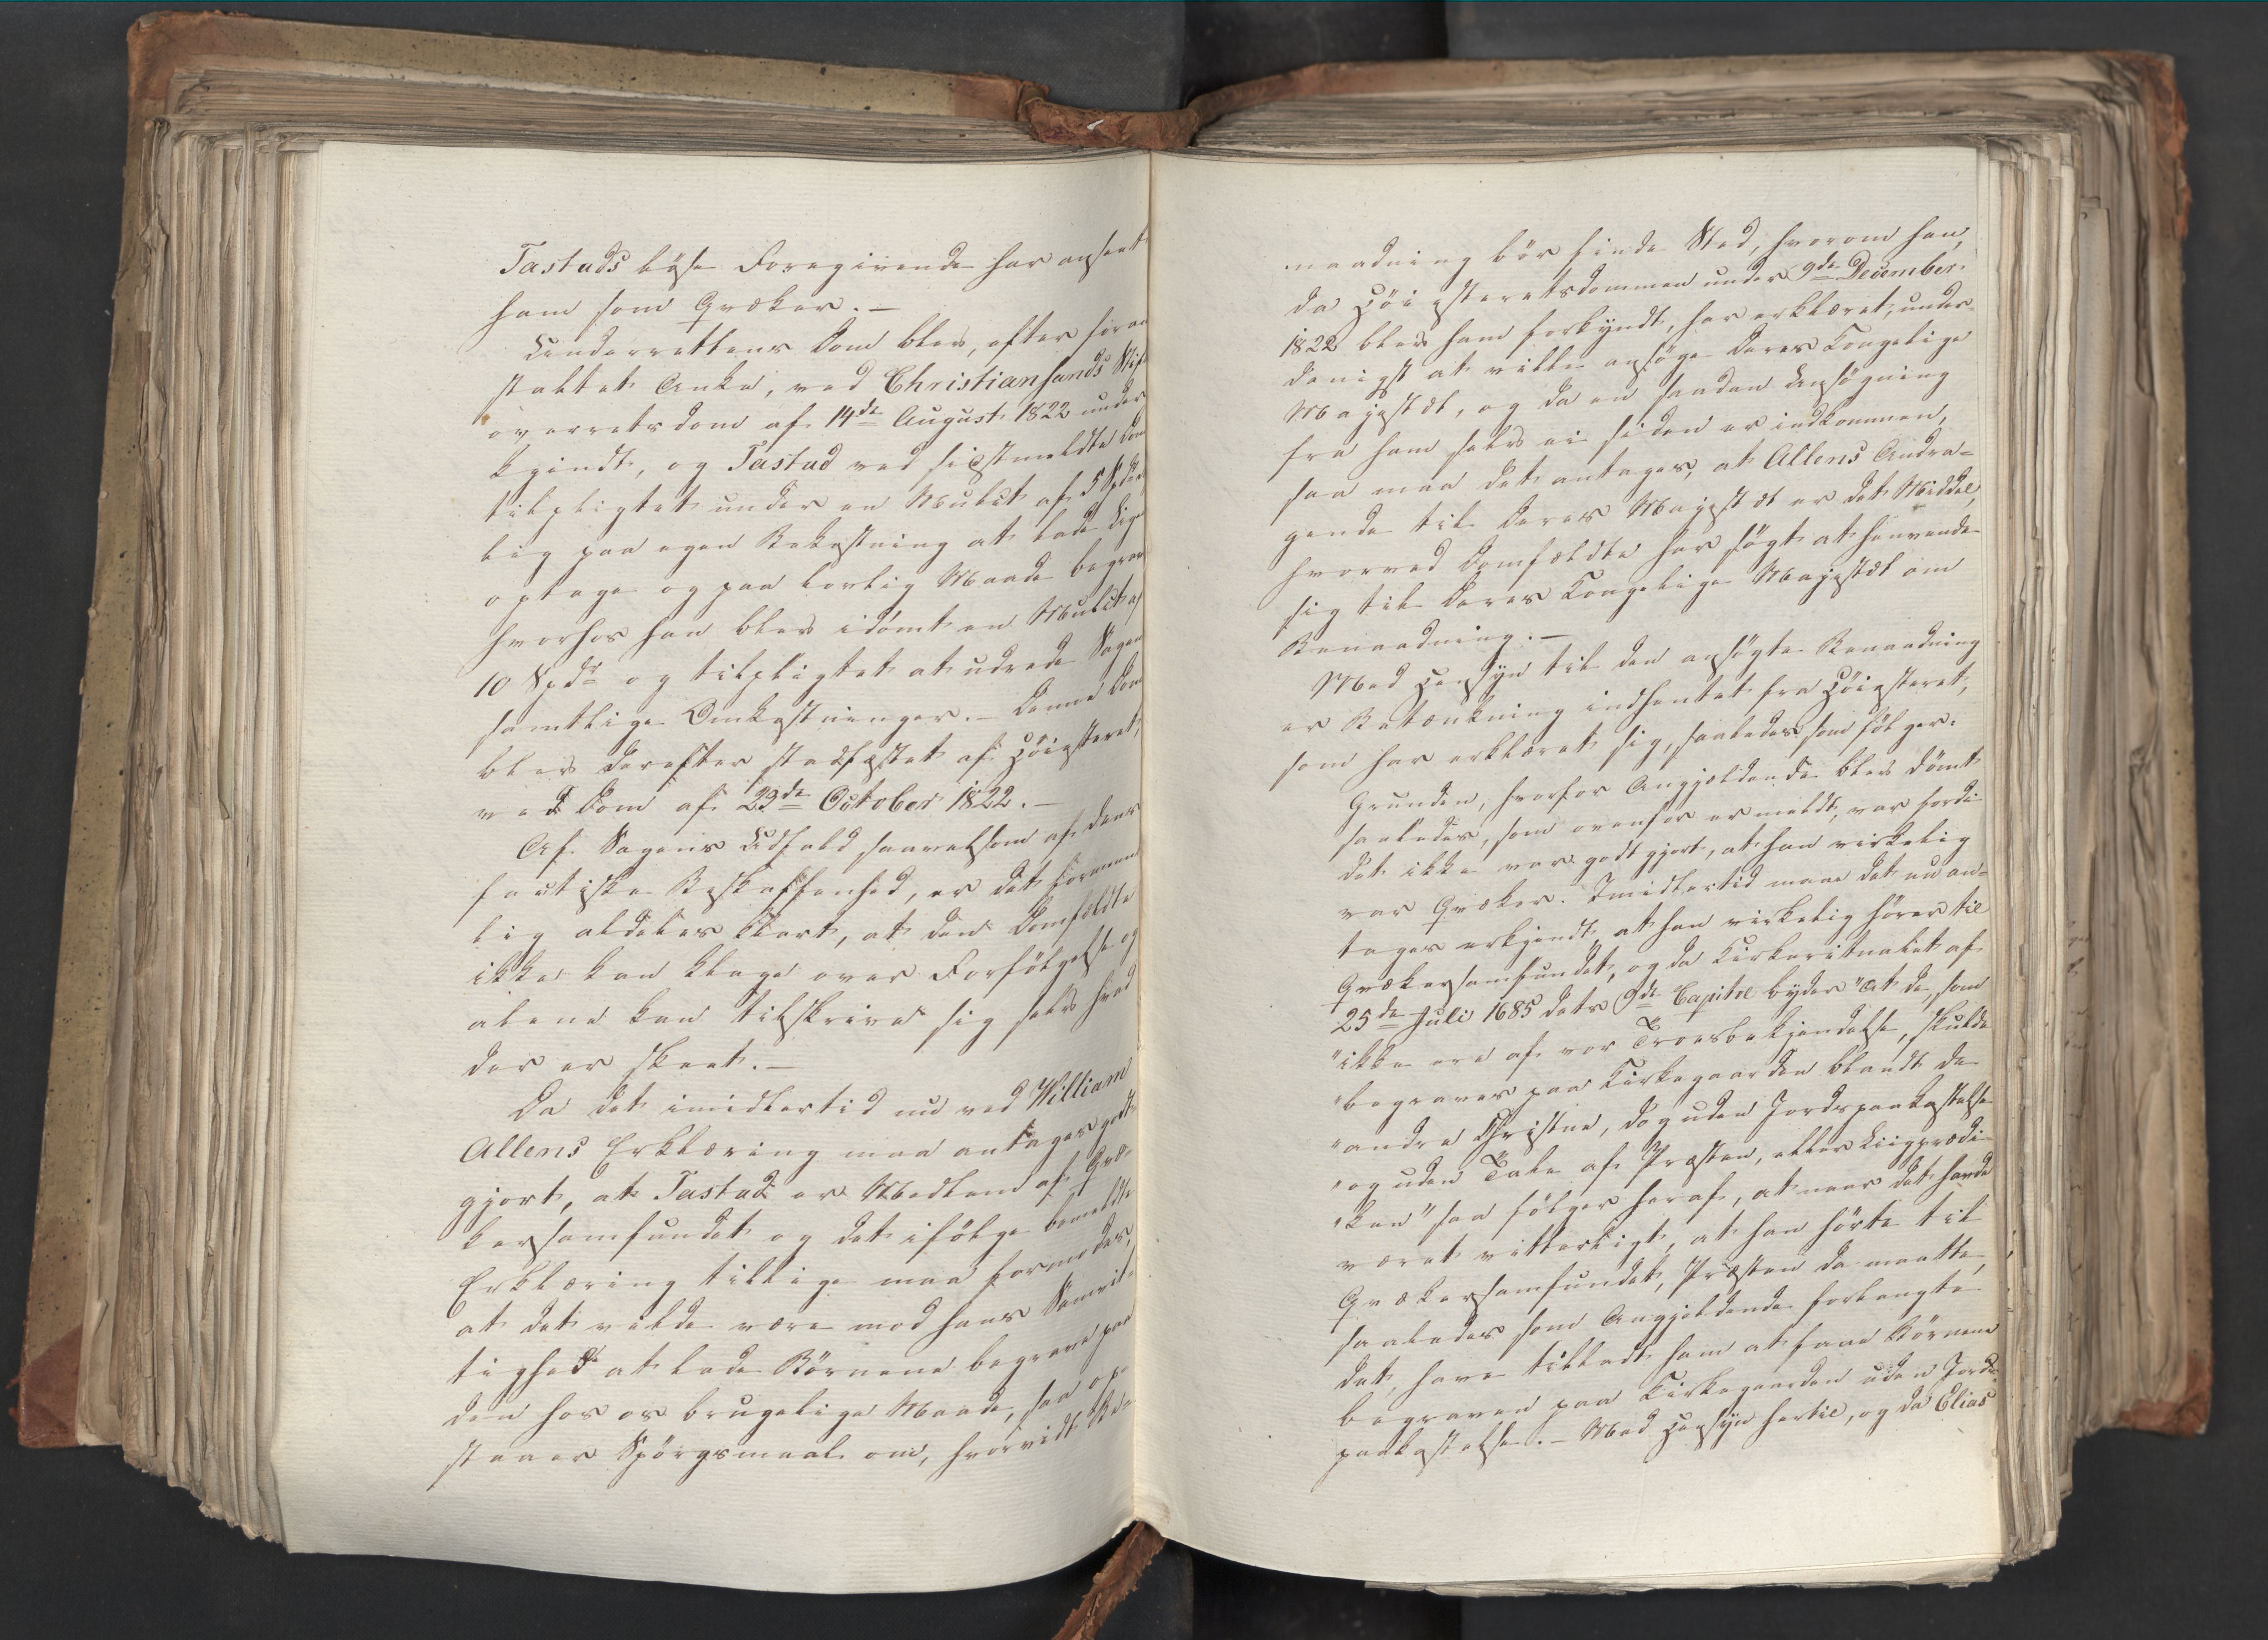 Tastads løse Foregivende har anseet
ham som Qvæker. —
Underrettens Dom blev, efter foran
staltet Anke, ved Christiansands Stif
overrets dom af 14de August 1822 under
kjendt, og Tastad ved sidstmeldte Dom
tilpligtet under en Mulct af 5 Spd dag
lig paa egen Bekostning at lade Lige
optage og paa lovlig Maade begrave
hvorhos han blev idømt en Mulct af
10 Spdr og tilpligtet at udrede Sagen
samtlige Omkostninger. — Denne Dom
blev derefter stadfæstet af Höiesteret,
ved Dom af 23de October 1822. —
Af Sagens Udfald saavelsom af dens
factiske Beskaffenhed, er det forment
lig aldeles klart, at den Domfældte
ikke kan klage over Forfölgelse og
alene kan tilskrive sig selv hvad
der er skeet. —
Da det imidlertid nu ved William
Allens Erklæring maa antages godt
gjort, at Tastad er Medlem af Qvæ-
kersamfundet og det ifölge bemeldte
Erklæring tillige maa formodes,
at det vilde være mod hans Samvit-
tighed at lade Börnene begrave paa
den hos os brugelige Maade, saa op-
staaer Spörgsmaal om, hvorvidt Be-
naadning bör finde Sted, hvorom han,
da Höiesteretsdommen under 9de December
1822 blev ham forkyndt, har erklæret, under-
danigst at ville ansöge Deres Kongelige
Majestæt, og da en saadan Ansögning
fra ham selv ei siden er indkommen,
saa maa det antages, at Allens Andra-
gende til Deres Majestæt er det Middel,
hvorved Domfældte har sögt at henvende
sig til Deres Kongelige Majestæt om
Benaadning. —
Med Hensyn til den ansögte Benaadning
er Betænkning indhentet fra Höiesteret,
som har erklæret sig, saaledes som fölger:
Grunden, hvorfor Angjældende blev dömt
saaledes, som ovenfor er meldt, var fordi
det ikke var godtgjort, at han virkelig
var Qvæker. Imidlertid maae det nu an-
tages erkjendt, at han virkelig hörer til
Qvækersamfundet, og da Kirkeritualet af
25de Juli 1685 dets 9de Capitel byder "at de, som
"ikke ere af vor Troesbekjendelse, skulde
"begraves paa Kirkegaarden blandt de
"andre Christne, dog uden Jordspaakastelse
"og uden Tale af Præsten, eller Liigprædi-
"ken" saa fölger heraf, at naar det havde
været vitterligt, at han hörte til
Qvækersamfundet, Præsten da maatte,
saaledes som Angjeldende forlangte
det, have tilladt ham at faae Börnene
begraven paa Kirkegaarden uden Jords-
paakastelse. — Med Hensyn hertil, og da Elias